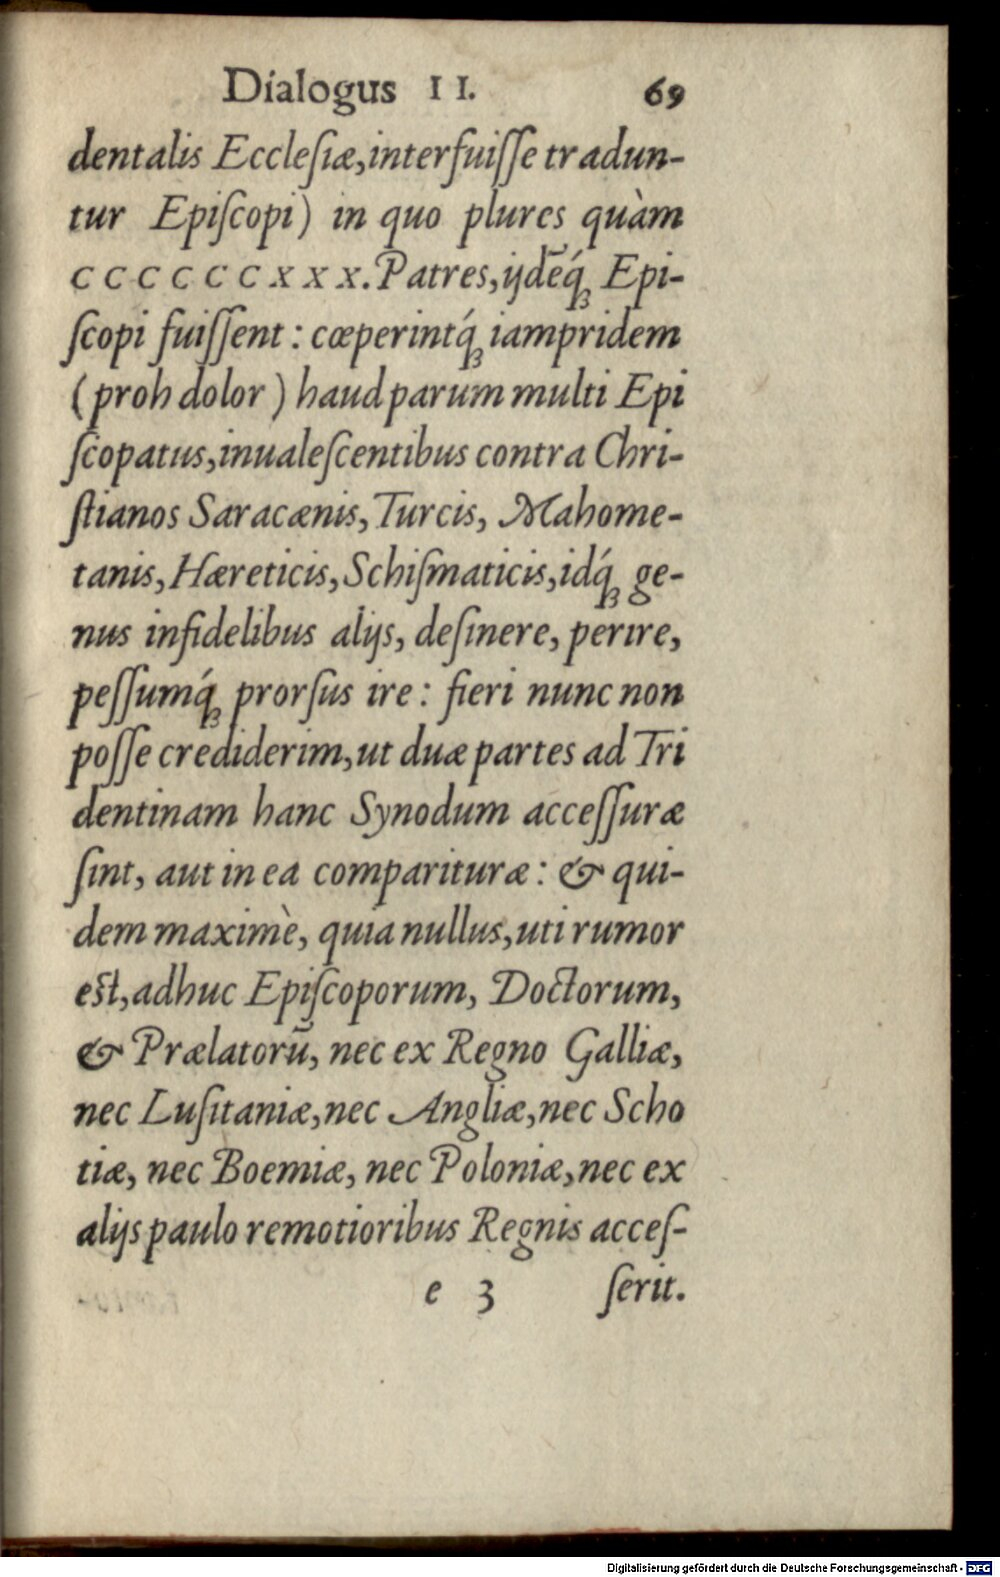 Dialogus II. 69
dentalis Ecclesiæ, interfuiſſe tradun-
tur Epiſcopi) in quo plures quàm
CCCCCCXXX. Patres, ijdēq́ꝫ Epi-
ſcopi fuiſſent: cœperintq́ꝫ iampridem
(proh dolor) haud parum multi Epi
ſcopatus, inualeſcentibus contra Chri-
ſtianos Saracænis, Turcis, Mahome-
tanis, Hæreticis, Schiſmaticis, idq́ꝫ ge-
nus infidelibus alijs, deſinere, perire,
peſſumq́ꝫ prorſus ire: fieri nunc non
poſſe crediderim, ut duæ partes ad Tri
dentinam hanc Synodum acceſſuræ
ſint, aut in ea comparituræ: & qui-
dem maximè, quia nullus, uti rumor
eſt, adhuc Epiſcoporum, Doctorum,
& Prælatorū, nec ex Regno Galliæ,
nec Luſitaniæ, nec Angliæ, nec Scho
tiæ, nec Boemiæ, nec Poloniæ, nec ex
alijs paulo remotioribus Regnis acceſ-
e 3 ſerit.
Digitalisierung gefördert durch die Deutsche Forschungsgemeinschaft - DFG